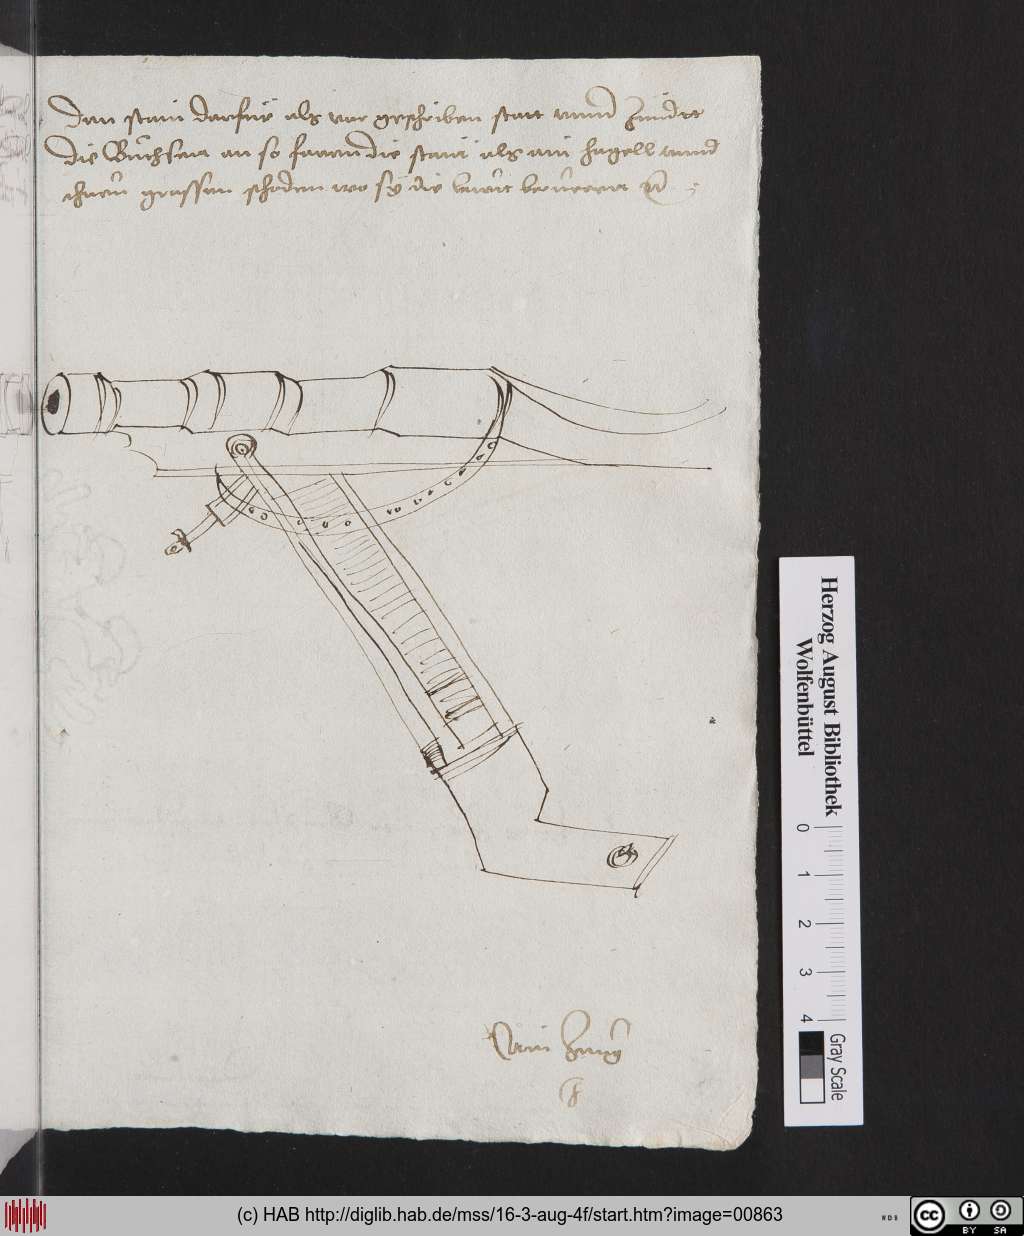 den stain darfür als vor geschriben stat vnnd zündt
die Büchsenn an so farenn die stain als ain hagell vnnd
thuenn grossen schaden wo sy die
Ain Zug
Herzog August Bibliothek
Wolfenbüttel
0 1 2 3 4
Gray Scale
(c) HAB http://diglib.hab.de/mss/16-3-aug-4f/start.htm?image=00863
WDB
cc BY SA